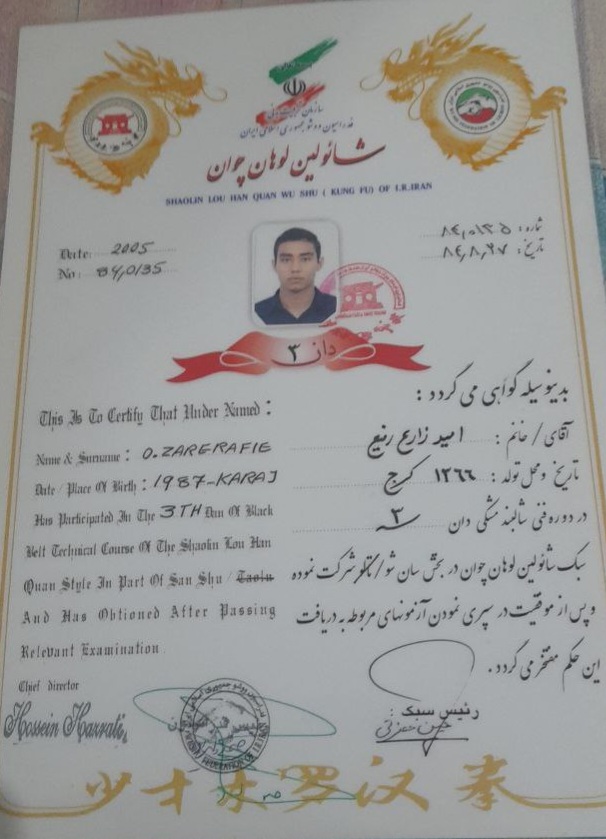 سازمان تربیت بدنی
فدراسیون ووشو جمهوری اسلامی ایران
شائولین لوهان چوان
SHAOLIN LOU HAN QUAN WU SHU ( KUNG FU) OF I.R.IRAN
شماره: ۸۴،۰۱۳۵
تاریخ: ۸۴،۸،۲۷
Date: 2005
No: 84,0135
دان ۳
بدینوسیله گواهی می گردد :
آقای / خانم : امید زارع رفیع
تاریخ و محل تولد : ۱۳۶۶ کرج
در دوره فنی شالبند مشکی دان ۳
سبک شائولین لوهان چوان در بخش سان شو / تالو شرکت نموده
و پس از موفقیت در سپری نمودن آزمونهای مربوطه به دریافت
این حکم مفتخر می گردد .
رئیس سبک :
This Is To Certify That Under Named :
Name & Surname : O.ZARERAFIE
Date / Place Of Birth : 1987-KARAJ
Has Participated In The 3TH Dan Of Black
Belt Technical Course Of The Shaolin Lou Han
Quan Style In Part Of San Shu / Taolu
And Has Obtioned After Passing
Relevant Examination
Chief director
Hossein Hazrati
少林罗汉拳